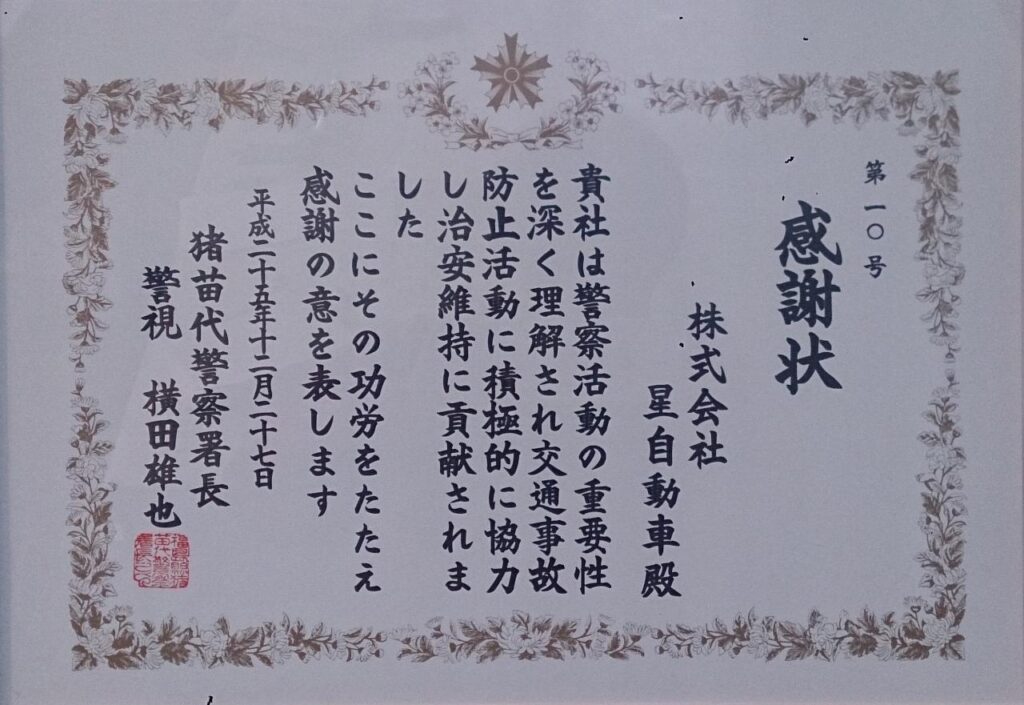 第一〇号
感謝状
株式会社
星自動車殿
貴社は警察活動の重要性
を深く理解され交通事故
防止活動に積極的に協力
し治安維持に貢献されま
した
ここにその功労をたたえ
感謝の意を表します
平成二十五年十二月二十七日
猪苗代警察署長
警視 横田雄也